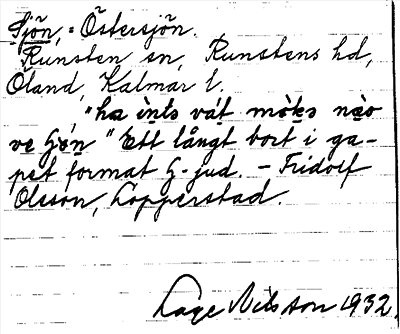 Sjön, = Östersjön.
Runsten sn, Runstens hd,
Öland, Kalmar l.
"ha ìnts vát mòks nào
ve ɧøn" Ett långt bort i ga-
pet format ɧ-jud. – Fridolf
Olsson, Lopperstad.
Lage Nilsson 1932.